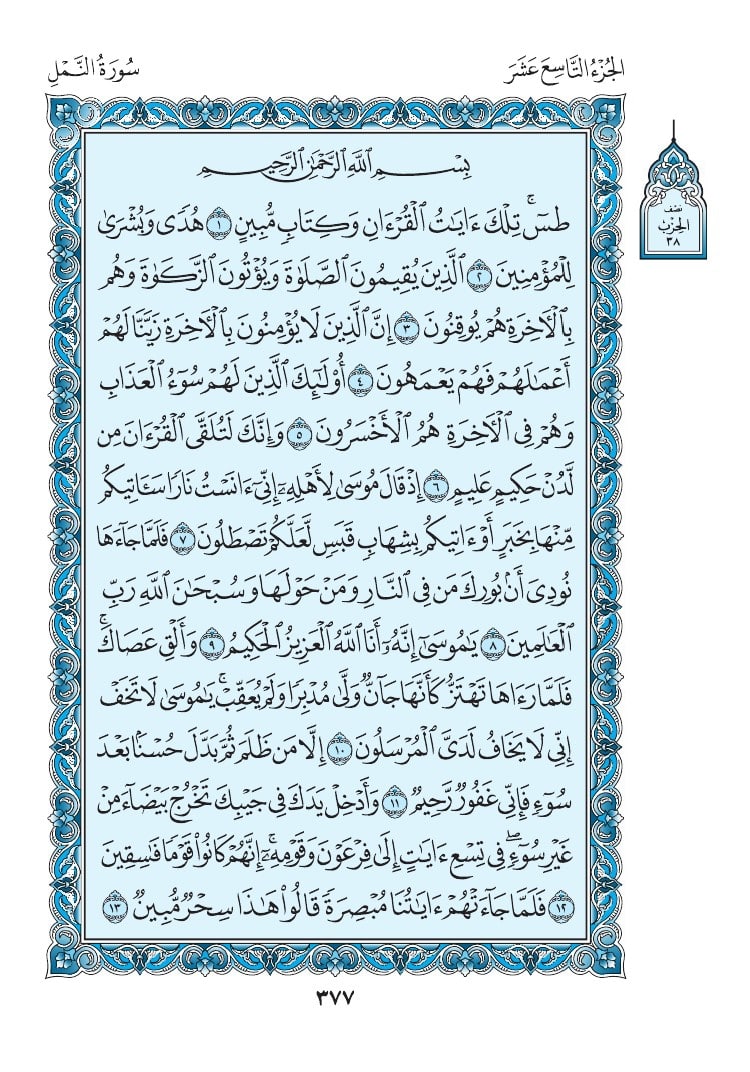 الجزء التاسع عشر
سورة النمل
نصف
الحزب
٣٨
بِسْمِ ٱللَّهِ ٱلرَّحْمَٰنِ ٱلرَّحِيمِ
طسٓۚ تِلْكَ ءَايَٰتُ ٱلْقُرْءَانِ وَكِتَابٍ مُّبِينٍ ١ هُدًى وَبُشْرَىٰ
لِلْمُؤْمِنِينَ ٢ ٱلَّذِينَ يُقِيمُونَ ٱلصَّلَوٰةَ وَيُؤْتُونَ ٱلزَّكَوٰةَ وَهُم
بِٱلْءَاخِرَةِ هُمْ يُوقِنُونَ ٣ إِنَّ ٱلَّذِينَ لَا يُؤْمِنُونَ بِٱلْءَاخِرَةِ زَيَّنَّا لَهُمْ
أَعْمَٰلَهُمْ فَهُمْ يَعْمَهُونَ ٤ أُو۟لَٰٓئِكَ ٱلَّذِينَ لَهُمْ سُوٓءُ ٱلْعَذَابِ
وَهُمْ فِى ٱلْءَاخِرَةِ هُمُ ٱلْأَخْسَرُونَ ٥ وَإِنَّكَ لَتُلَقَّى ٱلْقُرْءَانَ مِن
لَّدُنْ حَكِيمٍ عَلِيمٍ ٦ إِذْ قَالَ مُوسَىٰ لِأَهْلِهِۦٓ إِنِّىٓ ءَانَسْتُ نَارًا سَـَٔاتِيكُم
مِّنْهَا بِخَبَرٍ أَوْ ءَاتِيكُم بِشِهَابٍ قَبَسٍ لَّعَلَّكُمْ تَصْطَلُونَ ٧ فَلَمَّا جَآءَهَا
نُودِىَ أَنۢ بُورِكَ مَن فِى ٱلنَّارِ وَمَنْ حَوْلَهَا وَسُبْحَٰنَ ٱللَّهِ رَبِّ
ٱلْعَٰلَمِينَ ٨ يَٰمُوسَىٰٓ إِنَّهُۥٓ أَنَا ٱللَّهُ ٱلْعَزِيزُ ٱلْحَكِيمُ ٩ وَأَلْقِ عَصَاكَۚ
فَلَمَّا رَءَاهَا تَهْتَزُّ كَأَنَّهَا جَآنٌّ وَلَّىٰ مُدْبِرًا وَلَمْ يُعَقِّبْۚ يَٰمُوسَىٰ لَا تَخَفْ
إِنِّى لَا يَخَافُ لَدَىَّ ٱلْمُرْسَلُونَ ١٠ إِلَّا مَن ظَلَمَ ثُمَّ بَدَّلَ حُسْنًۢا بَعْدَ
سُوٓءٍ فَإِنِّى غَفُورٌ رَّحِيمٌ ١١ وَأَدْخِلْ يَدَكَ فِى جَيْبِكَ تَخْرُجْ بَيْضَآءَ مِنْ
غَيْرِ سُوٓءٍۖ فِى تِسْعِ ءَايَٰتٍ إِلَىٰ فِرْعَوْنَ وَقَوْمِهِۦٓۚ إِنَّهُمْ كَانُوا۟ قَوْمًا فَٰسِقِينَ
١٢ فَلَمَّا جَآءَتْهُمْ ءَايَٰتُنَا مُبْصِرَةً قَالُوا۟ هَٰذَا سِحْرٌ مُّبِينٌ ١٣
٣٧٧